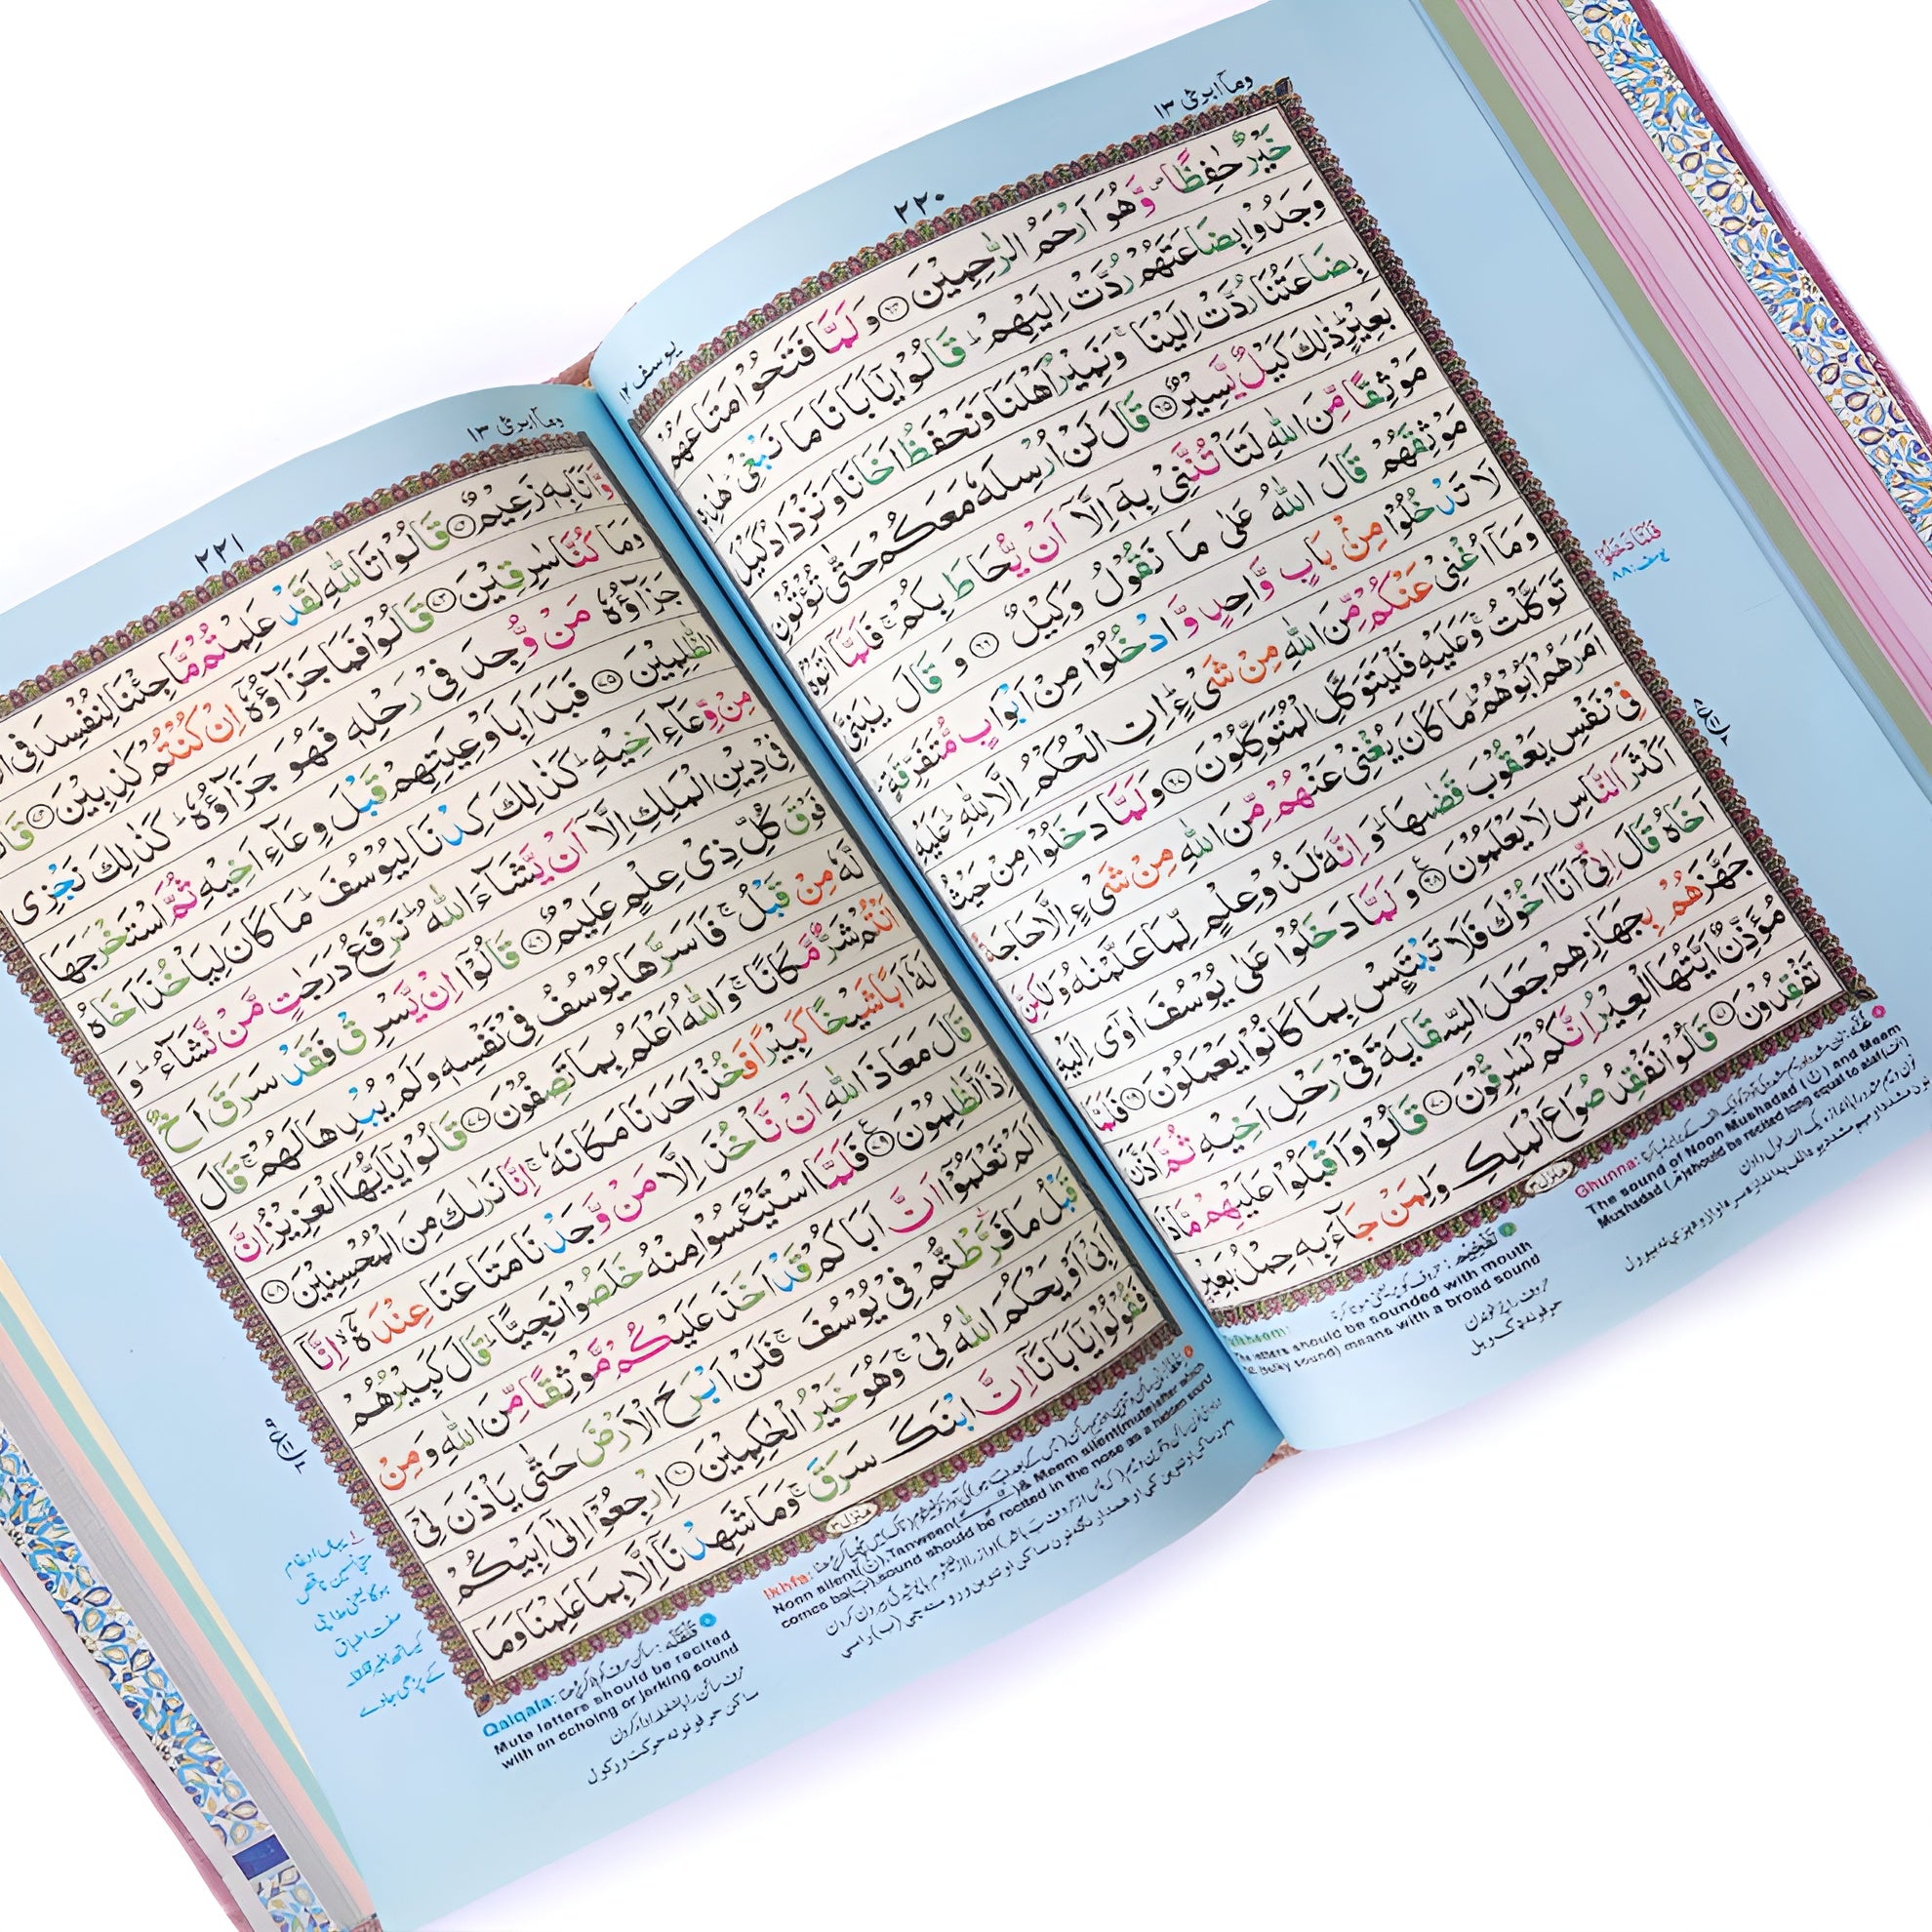 وماۤ ابرئ ١٣
٢٢٠
يوسف ١٢
خَيْرٌ حٰفِظًا ۪ وَّهُوَ اَرْحَمُ الرّٰحِمِيْنَ ۝٦٤ وَ لَمَّا فَتَحُوْا مَتَاعَهُمْ
وَجَدُوْا بِضَاعَتَهُمْ رُدَّتْ اِلَيْهِمْ ؕ قَالُوْا يٰۤاَبَانَا مَا نَبْغِيْ ؕ هٰذِهٖ
بِضَاعَتُنَا رُدَّتْ اِلَيْنَا ۚ وَنَمِيْرُ اَهْلَنَا وَنَحْفَظُ اَخَانَا وَنَزْدَادُ كَيْلَ
بَعِيْرٍ ؕ ذٰلِكَ كَيْلٌ يَّسِيْرٌ ۝٦٥ قَالَ لَنْ اُرْسِلَهٗ مَعَكُمْ حَتّٰى تُؤْتُوْنِ
مَوْثِقًا مِّنَ اللّٰهِ لَتَاْتُنَّنِيْ بِهٖۤ اِلَّاۤ اَنْ يُّحَاطَ بِكُمْ ۚ فَلَمَّاۤ اٰتَوْهُ
مَوْثِقَهُمْ قَالَ اللّٰهُ عَلٰى مَا نَقُوْلُ وَكِيْلٌ ۝٦٦ وَ قَالَ يٰبَنِيَّ
لَا تَدْخُلُوْا مِنْۢ بَابٍ وَّاحِدٍ وَّ ادْخُلُوْا مِنْ اَبْوَابٍ مُّتَفَرِّقَةٍ ؕ
وَمَاۤ اُغْنِيْ عَنْكُمْ مِّنَ اللّٰهِ مِنْ شَيْءٍ ؕ اِنِ الْحُكْمُ اِلَّا لِلّٰهِ ؕ عَلَيْهِ
تَوَكَّلْتُ ۚ وَعَلَيْهِ فَلْيَتَوَكَّلِ الْمُتَوَكِّلُوْنَ ۝٦٧ وَ لَمَّا دَخَلُوْا مِنْ حَيْثُ
اَمَرَهُمْ اَبُوْهُمْ ؕ مَا كَانَ يُغْنِيْ عَنْهُمْ مِّنَ اللّٰهِ مِنْ شَيْءٍ اِلَّا حَاجَةً
فِيْ نَفْسِ يَعْقُوْبَ قَضٰىهَا ؕ وَ اِنَّهٗ لَذُوْ عِلْمٍ لِّمَا عَلَّمْنٰهُ وَلٰكِنَّ
اَكْثَرَ النَّاسِ لَا يَعْلَمُوْنَ ۝٦٨ وَ لَمَّا دَخَلُوْا عَلٰى يُوْسُفَ اٰوٰۤى اِلَيْهِ
اَخَاهُ قَالَ اِنِّيْۤ اَنَا اَخُوْكَ فَلَا تَبْتَئِسْ بِمَا كَانُوْا يَعْمَلُوْنَ ۝٦٩ فَلَمَّا
جَهَّزَهُمْ بِجَهَازِهِمْ جَعَلَ السِّقَايَةَ فِيْ رَحْلِ اَخِيْهِ ثُمَّ اَذَّنَ
مُؤَذِّنٌ اَيَّتُهَا الْعِيْرُ اِنَّكُمْ لَسٰرِقُوْنَ ۝٧٠ قَالُوْا وَاَقْبَلُوْا عَلَيْهِمْ مَّاذَا
تَفْقِدُوْنَ ۝٧١ قَالُوْا نَفْقِدُ صُوَاعَ الْمَلِكِ وَلِمَنْ جَآءَ بِهٖ حِمْلُ بَعِيْرٍ
منزل ٣
فَلَمَّا دَخَلُوْا
يوسف: ٨٨
Ghunna:
The sound of Noon Mushadad (نّ) and Meem
Mushdad (مّ) should be recited long equal to alaif
تَفْخِيْم:
letters should be sounded with mouth
means with a broad sound
وماۤ ابرئ ١٣
٢٢١
وَّاَنَا بِهٖ زَعِيْمٌ ۝٧٢ قَالُوْا تَاللّٰهِ لَقَدْ عَلِمْتُمْ مَّا جِئْنَا لِنُفْسِدَ فِي
وَمَا كُنَّا سٰرِقِيْنَ ۝٧٣ قَالُوْا فَمَا جَزَآؤُهٗۤ اِنْ كُنْتُمْ كٰذِبِيْنَ ۝٧٤
جَزَآؤُهٗ مَنْ وُّجِدَ فِيْ رَحْلِهٖ فَهُوَ جَزَآؤُهٗ ؕ كَذٰلِكَ نَجْزِي
الظّٰلِمِيْنَ ۝٧٥ فَبَدَاَ بِاَوْعِيَتِهِمْ قَبْلَ وِعَآءِ اَخِيْهِ ثُمَّ اسْتَخْرَجَهَا
مِنْ وِّعَآءِ اَخِيْهِ ؕ كَذٰلِكَ كِدْنَا لِيُوْسُفَ ؕ مَا كَانَ لِيَاْخُذَ اَخَاهُ
فِيْ دِيْنِ الْمَلِكِ اِلَّاۤ اَنْ يَّشَآءَ اللّٰهُ ؕ نَرْفَعُ دَرَجٰتٍ مَّنْ نَّشَآءُ ؕ وَ
فَوْقَ كُلِّ ذِيْ عِلْمٍ عَلِيْمٌ ۝٧٦ قَالُوْۤا اِنْ يَّسْرِقْ فَقَدْ سَرَقَ اَخٌ
لَّهٗ مِنْ قَبْلُ ۚ فَاَسَرَّهَا يُوْسُفُ فِيْ نَفْسِهٖ وَلَمْ يُبْدِهَا لَهُمْ ۚ قَالَ
اَنْتُمْ شَرٌّ مَّكَانًا ۚ وَاللّٰهُ اَعْلَمُ بِمَا تَصِفُوْنَ ۝٧٧ قَالُوْا يٰۤاَيُّهَا الْعَزِيْزُ اِنَّ
لَهٗۤ اَبًا شَيْخًا كَبِيْرًا فَخُذْ اَحَدَنَا مَكَانَهٗ ۚ اِنَّا نَرٰىكَ مِنَ الْمُحْسِنِيْنَ ۝٧٨
قَالَ مَعَاذَ اللّٰهِ اَنْ نَّاْخُذَ اِلَّا مَنْ وَّجَدْنَا مَتَاعَنَا عِنْدَهٗۤ ۙ اِنَّاۤ
اِذًا لَّظٰلِمُوْنَ ۝٧٩ فَلَمَّا اسْتَيْئَسُوْا مِنْهُ خَلَصُوْا نَجِيًّا ؕ قَالَ كَبِيْرُهُمْ
اَلَمْ تَعْلَمُوْۤا اَنَّ اَبَاكُمْ قَدْ اَخَذَ عَلَيْكُمْ مَّوْثِقًا مِّنَ اللّٰهِ وَ مِنْ
قَبْلُ مَا فَرَّطْتُّمْ فِيْ يُوْسُفَ ۚ فَلَنْ اَبْرَحَ الْاَرْضَ حَتّٰى يَاْذَنَ لِيْۤ
اَبِيْۤ اَوْ يَحْكُمَ اللّٰهُ لِيْ ۚ وَهُوَ خَيْرُ الْحٰكِمِيْنَ ۝٨٠ اِرْجِعُوْۤا اِلٰۤى اَبِيْكُمْ
فَقُوْلُوْا يٰۤاَبَانَاۤ اِنَّ ابْنَكَ سَرَقَ ۚ وَمَا شَهِدْنَاۤ اِلَّا بِمَا عَلِمْنَا وَمَا
منزل ٣
Ikhfa:
Noon silent(نْ), Tanween & Meem silent(mute) after which
comes baa(ب) sound should be recited in the nose as a hidden sound
Qalqala: قَلْقَلَه:
Mute letters should be recited
with an echoing or jerking sound